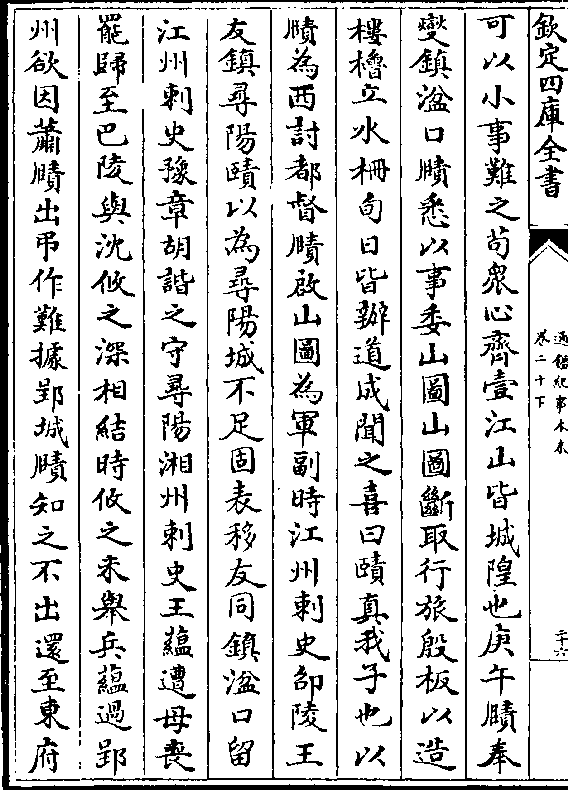 欽定四庫全書
通鑑紀事本末
卷二十下
二十六
可以小事難之苟衆心齊壹江山皆城隍也庚午賾奉
燮鎮湓口賾悉以事委山圖山圖斷取行旅殷板以造
樓櫓立水柵旬日皆辦道成聞之喜曰賾真我子也以
賾為西討都督賾啟山圖為軍副時江州刺史邵陵王
友鎮尋陽賾以為尋陽城不足固表移友同鎮湓口留
江州刺史豫章胡諧之守尋陽湘州刺史王藴遭母喪
罷歸至巴陵與沈攸之深相結時攸之未舉兵藴過郢
州欲因蕭賾出弔作難據郢城賾知之不出還至東府